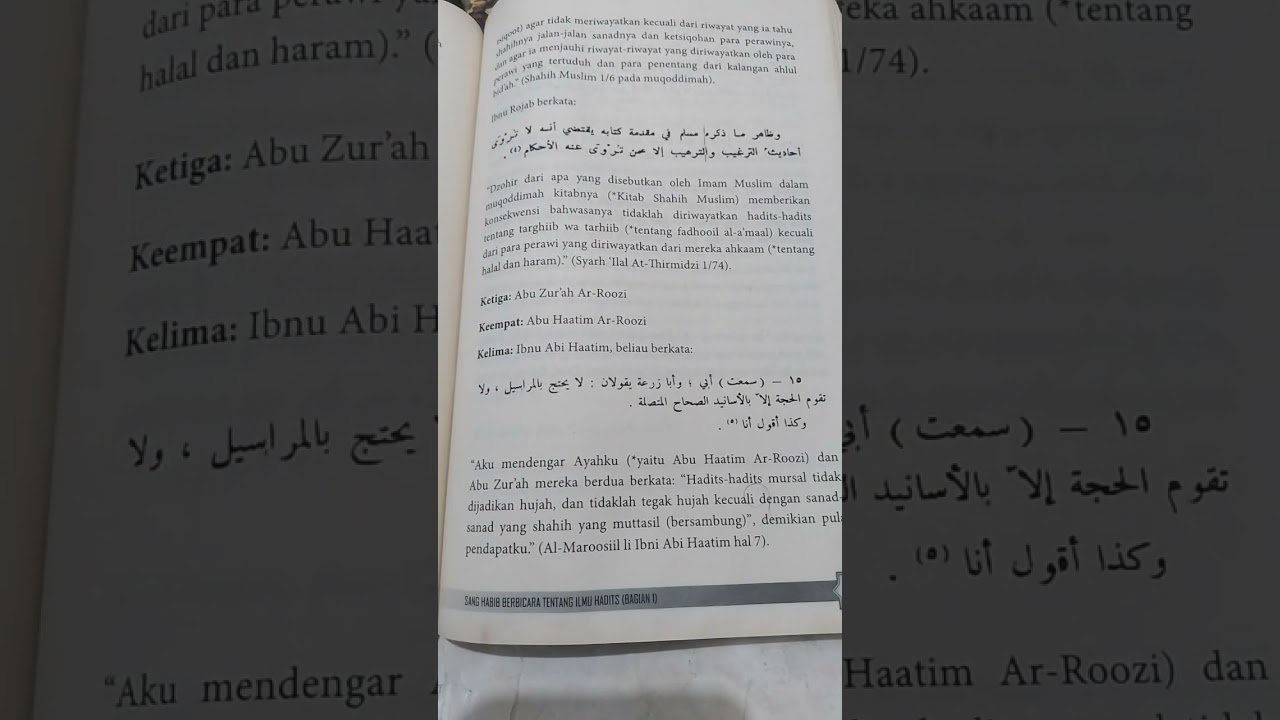 tsiqoot) agar tidak meriwayatkan kecuali dari riwayat yang ia tahu
shahihnya jalan-jalan sanadnya dan ketsiqohan para perawinya,
dan agar ia menjauhi riwayat-riwayat yang diriwayatkan oleh para
perawi yang tertuduh dan para penentang dari kalangan ahlul
bid'ah." (Shahih Muslim 1/6 pada muqoddimah).
Ibnu Rojab berkata:
وظاهر ما ذكره مسلم في مقدمة كتابه يقتضي أنه لا تُرْوَى
أحاديث الترغيب والترهيب إلا عمن تُرْوَى عنه الأحكام (٤) .
"Dzohir dari apa yang disebutkan oleh Imam Muslim dalam
muqoddimah kitabnya (*Kitab Shahih Muslim) memberikan
konsekwensi bahwasanya tidaklah diriwayatkan hadits-hadits
tentang targhiib wa tarhiib (*tentang fadhooil al-a'maal) kecuali
dari para perawi yang diriwayatkan dari mereka ahkaam (*tentang
halal dan haram)." (Syarh 'Ilal At-Thirmidzi 1/74).
Ketiga: Abu Zur'ah Ar-Roozi
Keempat: Abu Haatim Ar-Roozi
Kelima: Ibnu Abi Haatim, beliau berkata:
١٥ – (سمعت) أبي ؛ وأبا زرعة يقولان : لا يحتج بالمراسيل ، ولا
تقوم الحجة إلاّ بالأسانيد الصحاح المتصلة .
وكذا أقول أنا (٥) .
"Aku mendengar Ayahku (*yaitu Abu Haatim Ar-Roozi) dan
Abu Zur'ah mereka berdua berkata: "Hadits-hadits mursal tidak
dijadikan hujah, dan tidaklah tegak hujah kecuali dengan sanad-
sanad yang shahih yang muttasil (bersambung)", demikian pula
pendapatku." (Al-Maroosiil li Ibni Abi Haatim hal 7).
SANG HABIB BERBICARA TENTANG ILMU HADITS (BAGIAN I)